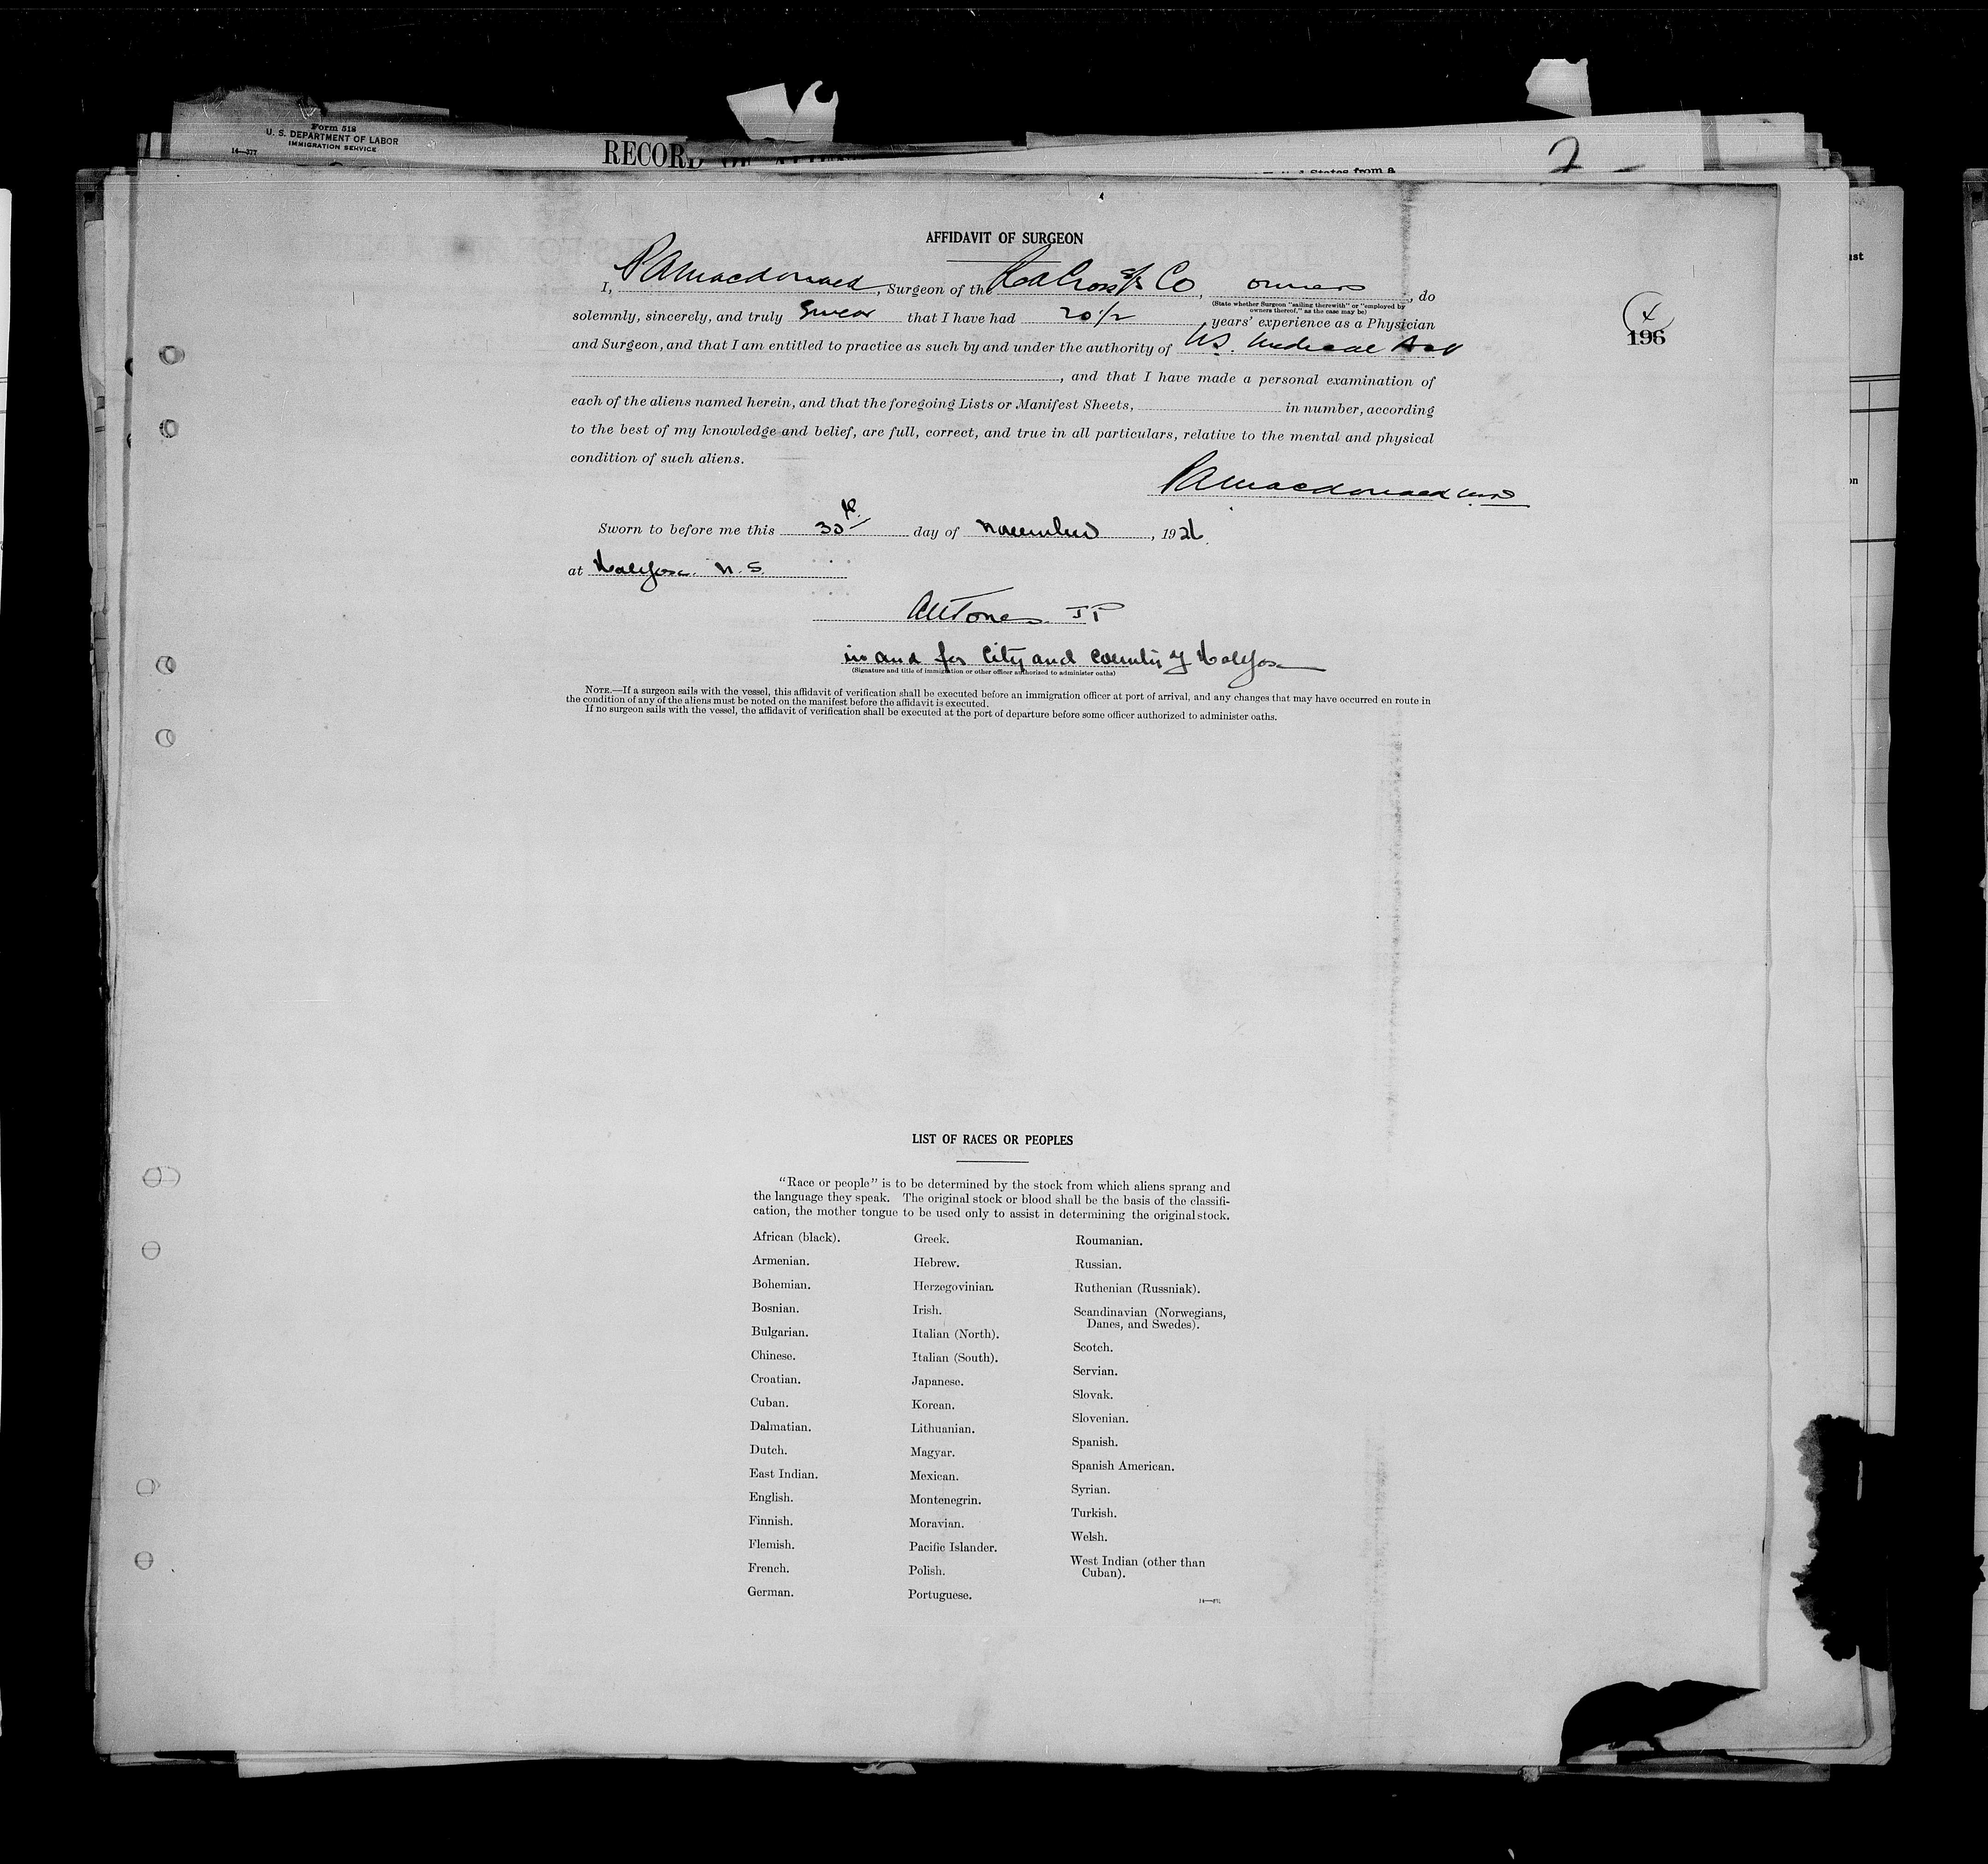 Form 518
U. S. DEPARTMENT OF LABOR
IMMIGRATION SERVICE
14—377
RECORD
2
United States from a
AFFIDAVIT OF SURGEON
I, PA Macdonald, Surgeon of the Red Cross S/S Co, owners, do
(State whether Surgeon "sailing therewith" or "employed by
owners thereof," as the case may be)
solemnly, sincerely, and truly Swear that I have had 20 1/2 years' experience as a Physician
4
196
and Surgeon, and that I am entitled to practice as such by and under the authority of NS. Medical
, and that I have made a personal examination of
each of the aliens named herein, and that the foregoing Lists or Manifest Sheets, in number, according
to the best of my knowledge and belief, are full, correct, and true in all particulars, relative to the mental and physical
condition of such aliens.
PA Macdonald MD
Sworn to before me this 30th day of November, 192
at Halifax. N.S.
Jones. JP
in and for City and County of Halifax
(Signature and title of immigration or other officer authorized to administer oaths)
NOTE.—If a surgeon sails with the vessel, this affidavit of verification shall be executed before an immigration officer at port of arrival, and any changes that may have occurred en route in
the condition of any of the aliens must be noted on the manifest before the affidavit is executed.
If no surgeon sails with the vessel, the affidavit of verification shall be executed at the port of departure before some officer authorized to administer oaths.
LIST OF RACES OR PEOPLES
"Race or people" is to be determined by the stock from which aliens sprang and
the language they speak. The original stock or blood shall be the basis of the classifi-
cation, the mother tongue to be used only to assist in determining the original stock.
African (black).
Armenian.
Bohemian.
Bosnian.
Bulgarian.
Chinese.
Croatian.
Cuban.
Dalmatian.
Dutch.
East Indian.
English.
Finnish.
Flemish.
French.
German.
Greek.
Hebrew.
Herzegovinian.
Irish.
Italian (North).
Italian (South).
Japanese.
Korean.
Lithuanian.
Magyar.
Mexican.
Montenegrin.
Moravian.
Pacific Islander.
Polish.
Portuguese.
Roumanian.
Russian.
Ruthenian (Russniak).
Scandinavian (Norwegians,
Danes, and Swedes).
Scotch.
Servian.
Slovak.
Slovenian.
Spanish.
Spanish American.
Syrian.
Turkish.
Welsh.
West Indian (other than
Cuban).